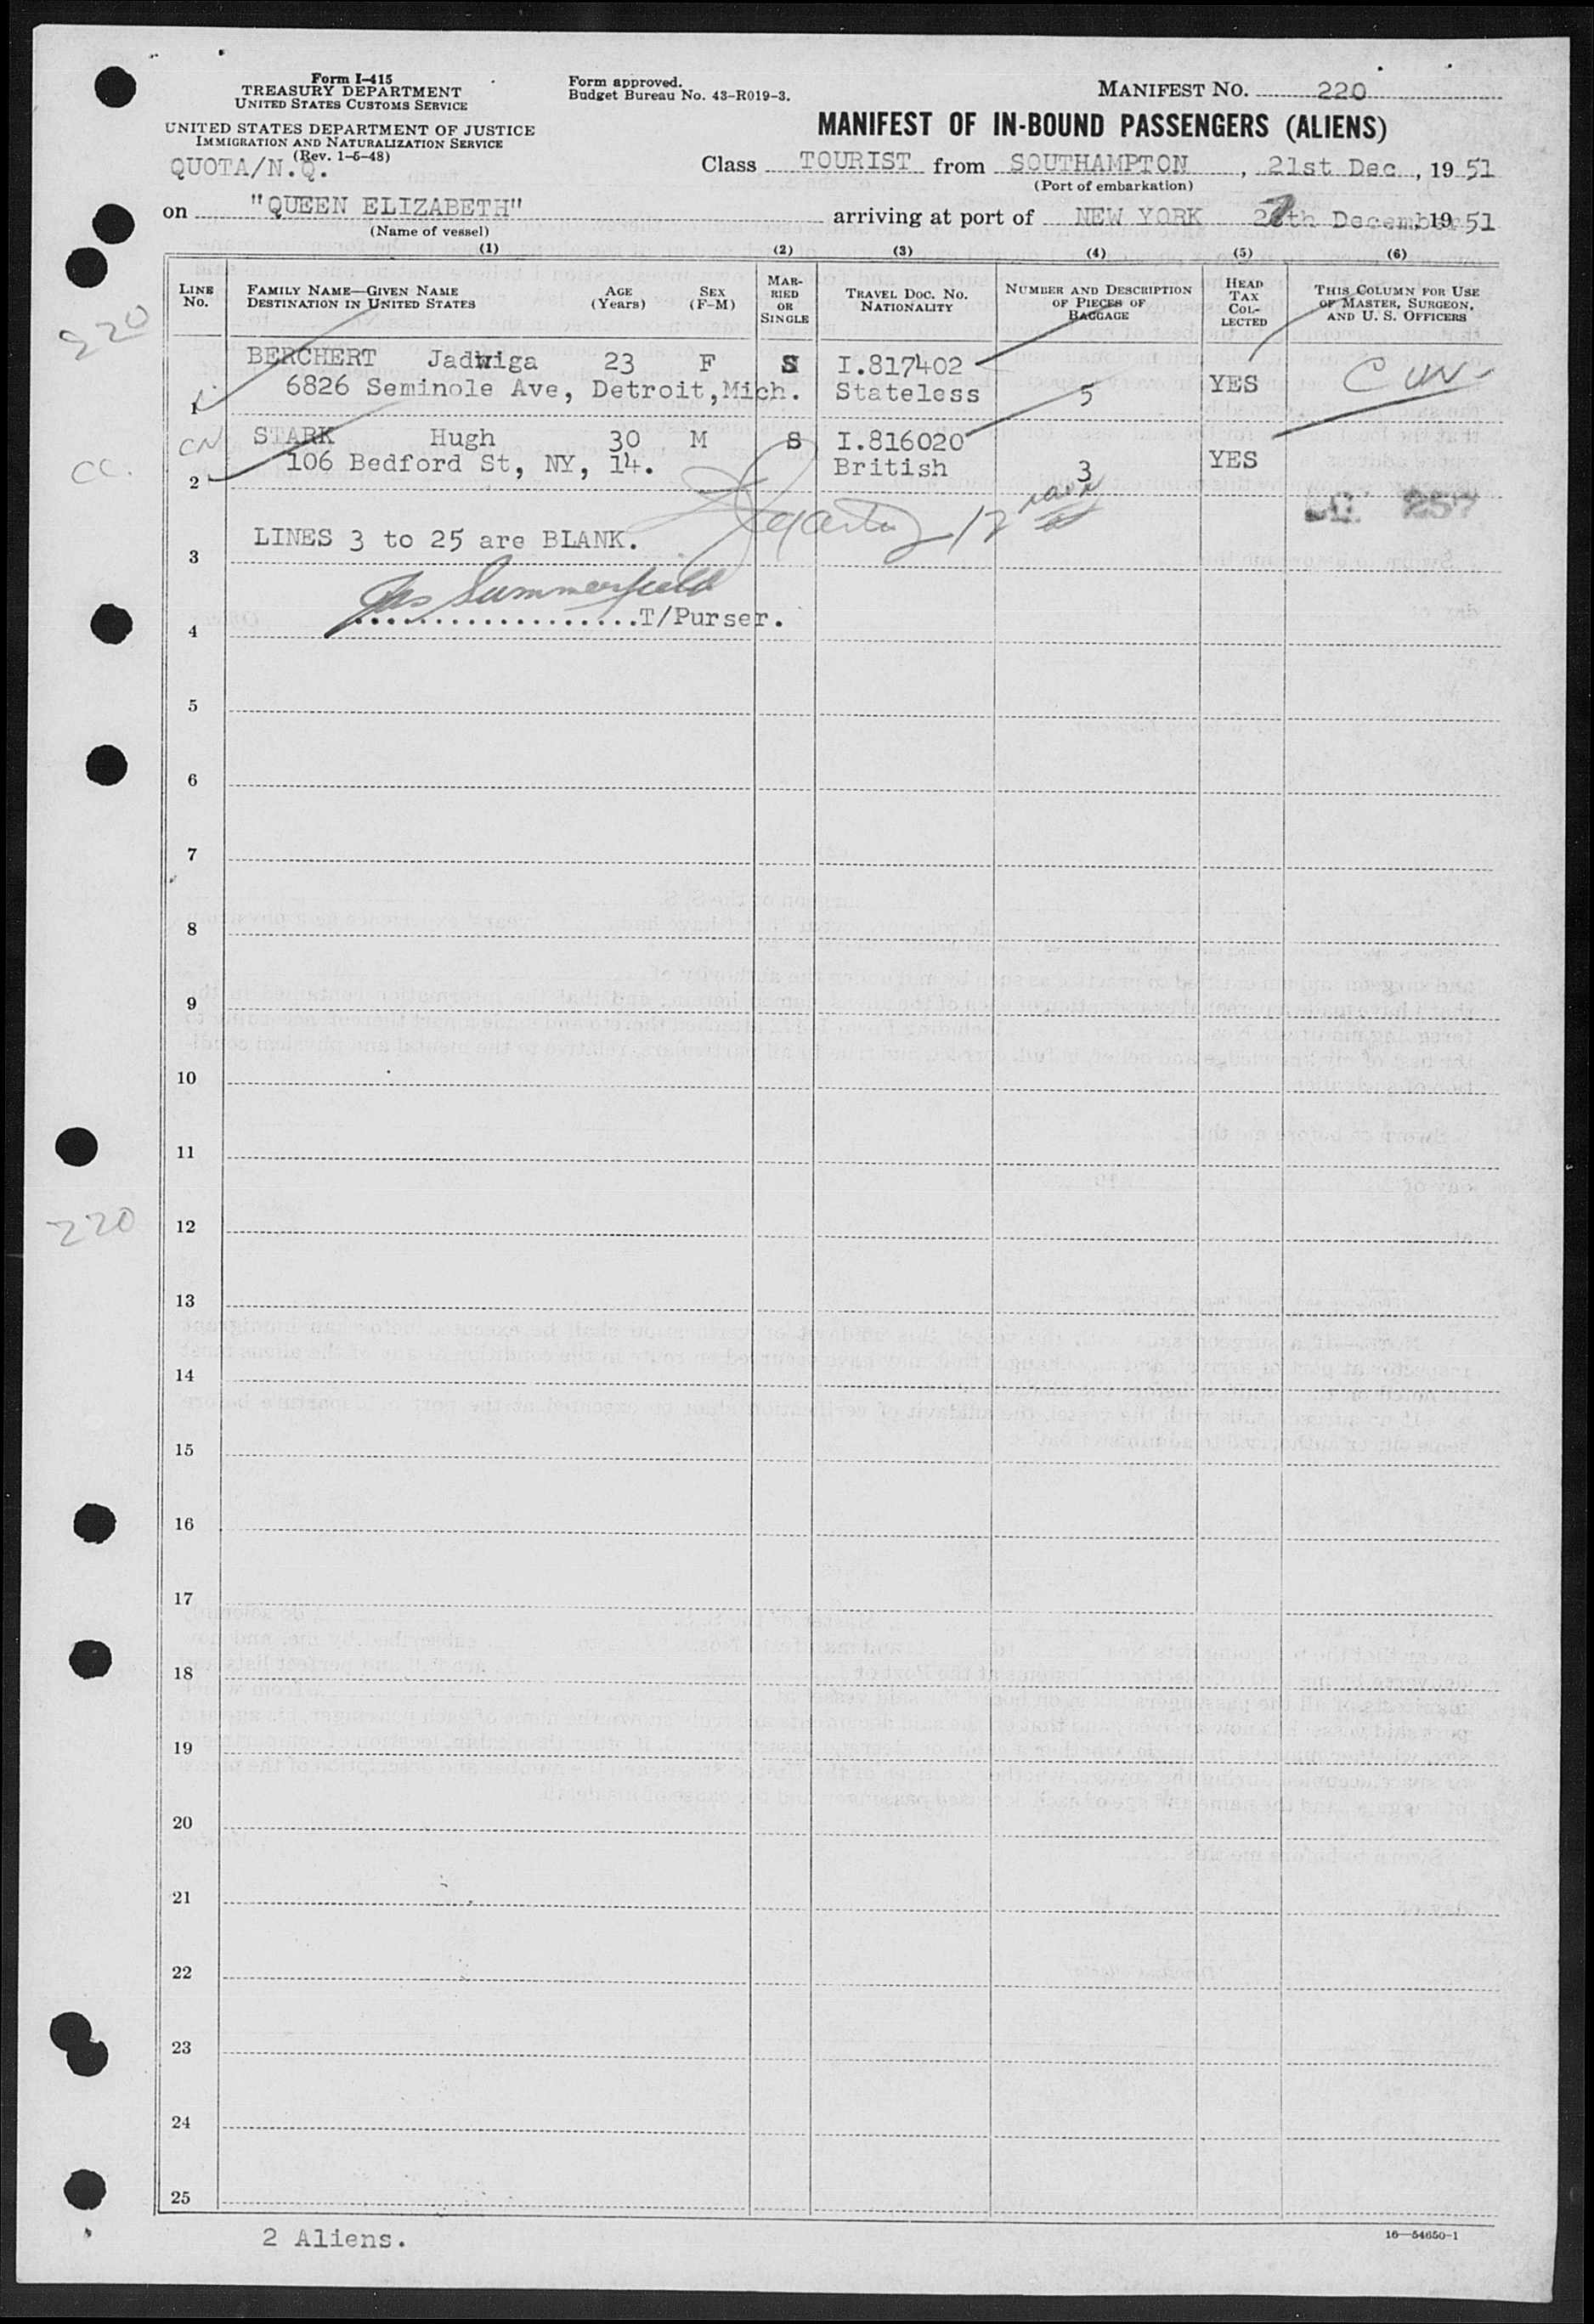 Form I-415
TREASURY DEPARTMENT
UNITED STATES CUSTOMS SERVICE
UNITED STATES DEPARTMENT OF JUSTICE
IMMIGRATION AND NATURALIZATION SERVICE
(Rev. 1-5-48)
QUOTA/N.Q.
Form approved.
Budget Bureau No. 43-R019-3.
MANIFEST NO. 220
MANIFEST OF IN-BOUND PASSENGERS (ALIENS)
Class TOURIST from SOUTHAMPTON, 21st Dec, 19 51
(Port of embarkation)
on "QUEEN ELIZABETH" arriving at port of NEW YORK 27th December, 19 51
(Name of vessel)
(1) (2) (3) (4) (5) (6)
LINE No.
FAMILY NAME—GIVEN NAME
DESTINATION IN UNITED STATES
AGE (Years)
SEX (F-M)
MARRIED OR SINGLE
TRAVEL DOC. NO.
NATIONALITY
NUMBER AND DESCRIPTION OF PIECES OF BAGGAGE
HEAD TAX COLLECTED
THIS COLUMN FOR USE OF MASTER, SURGEON, AND U. S. OFFICERS
220
1 BERCHERT Jadwiga 23 F S I.817402
6826 Seminole Ave, Detroit, Mich. Stateless 5 YES
CN
cc.
2 STARK Hugh 30 M S I.816020
106 Bedford St, NY, 14. British 3 YES
3 LINES 3 to 25 are BLANK.
Jas Summerfield
4 ...................T/Purser.
5
6
7
8
9
10
11
220
12
13
14
15
16
17
18
19
20
21
22
23
24
25
2 Aliens.
16—54650-1